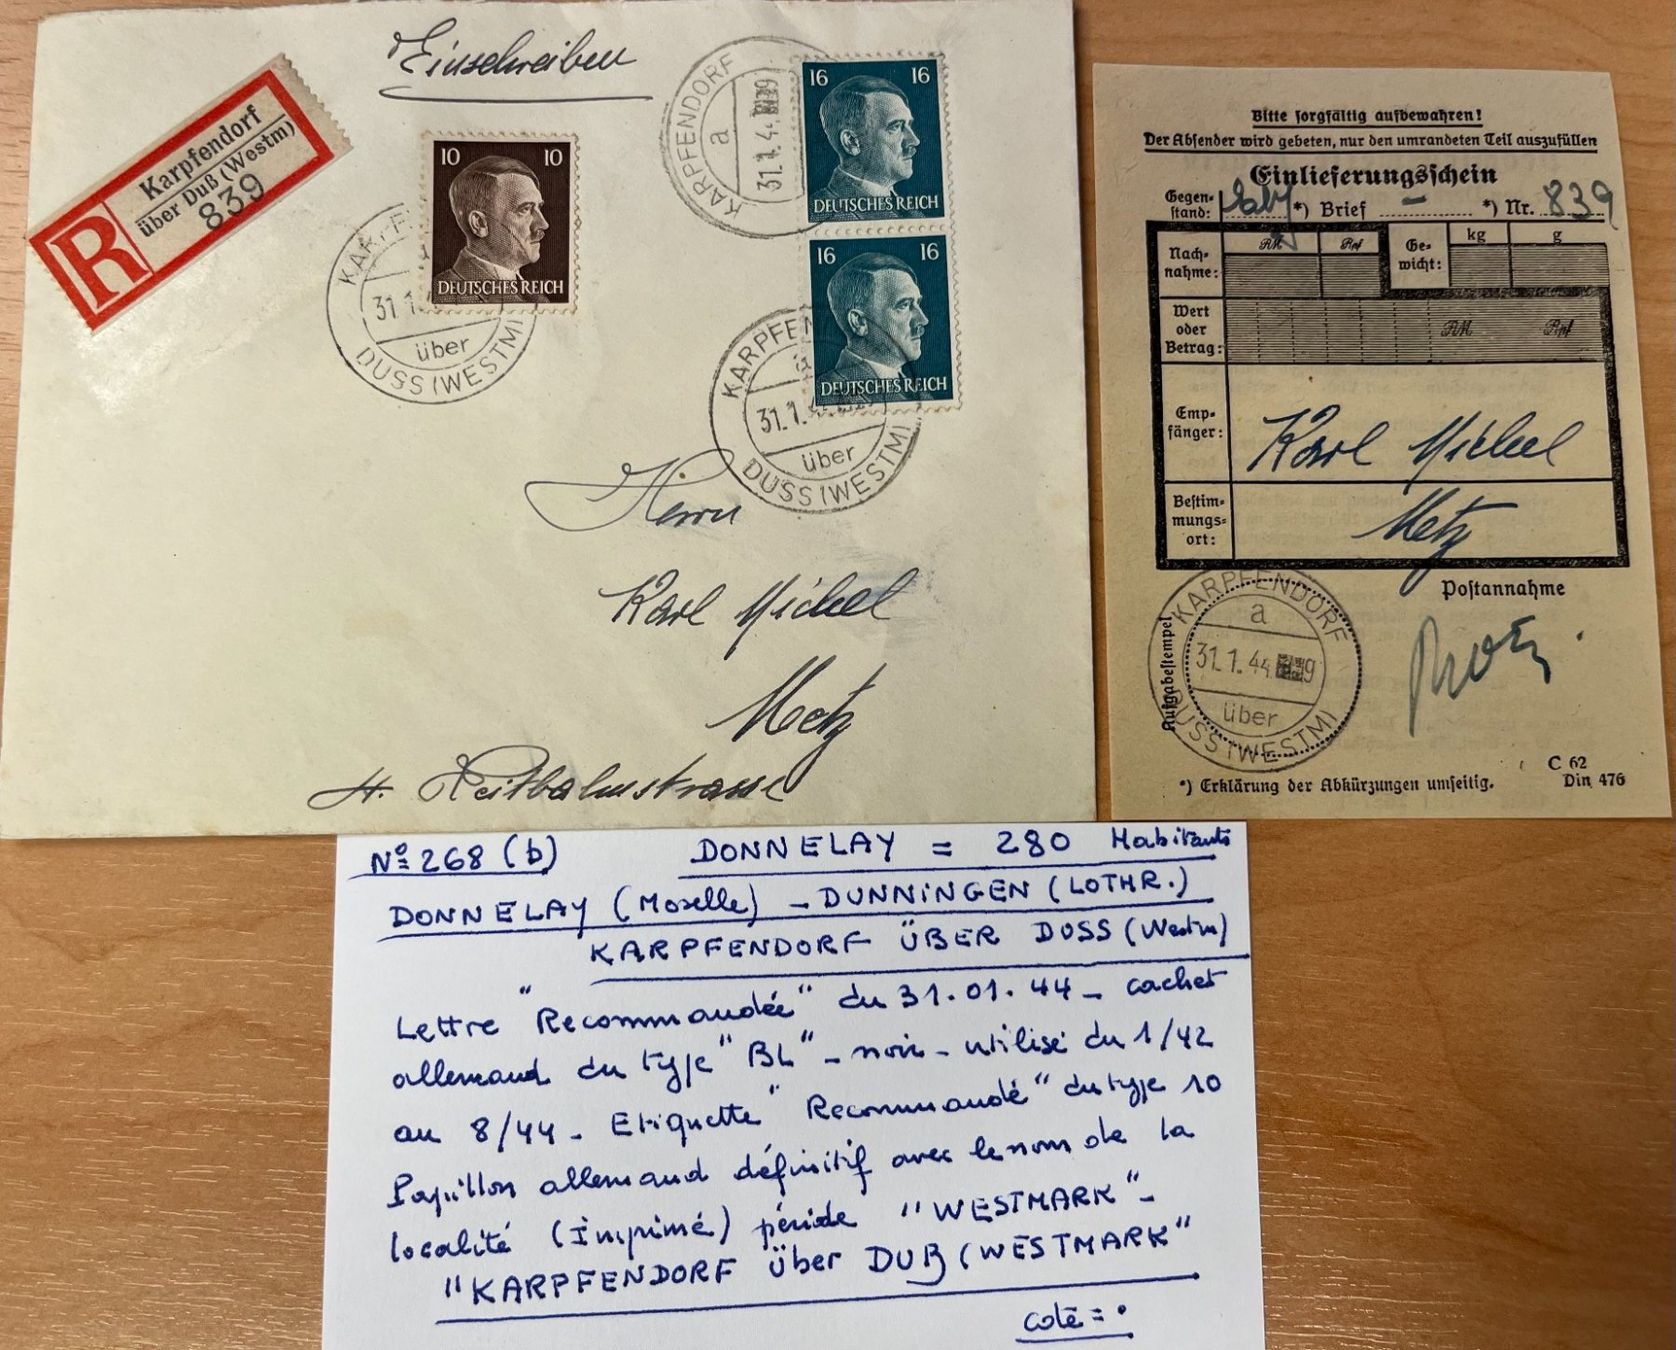 Einschreiben
R
Karpfendorf
über Duß (Westm)
839
KARPFENDORF
a
31.1.44
KARPFENDORF
10 10
DEUTSCHES REICH
31.1
über
DUSS (WESTM)
16 16
DEUTSCHES REICH
16 16
DEUTSCHES REICH
KARPFEN
31.1.4
über
DUSS (WESTM)
Herrn
Karl Michel
Metz
4. Reitbahnstrasse
Bitte sorgfältig aufbewahren!
Der Absender wird gebeten, nur den umrandeten Teil auszufüllen
Einlieferungsschein
Gegenstand: *) Brief – *) Nr. 839
Nach-
nahme:
RM Rpf
Ge-
wicht:
kg g
Wert
oder
Betrag:
RM Rpf
Emp-
fänger:
Karl Michel
Bestim-
mungs-
ort:
Metz
Postannahme
Aufgabestempel
KARPFENDORF
a
31.1.44 9
über
DUSS (WESTM)
*) Erklärung der Abkürzungen umseitig.
C 62
Din 476
N° 268 (b) DONNELAY = 280 Habitants
DONNELAY (Moselle) - DUNNINGEN (LOTHR.)
KARPFENDORF ÜBER DUSS (Westm)
Lettre "Recommandée" du 31.01.44 - cachet
allemand du type "BL" - noir - utilisé du 1/42
au 8/44 - Etiquette "Recommandé" du type 10
Papillon allemand définitif avec le nom de la
localité (Imprimé) période "WESTMARK" -
"KARPFENDORF über DUß (WESTMARK"
cote = .